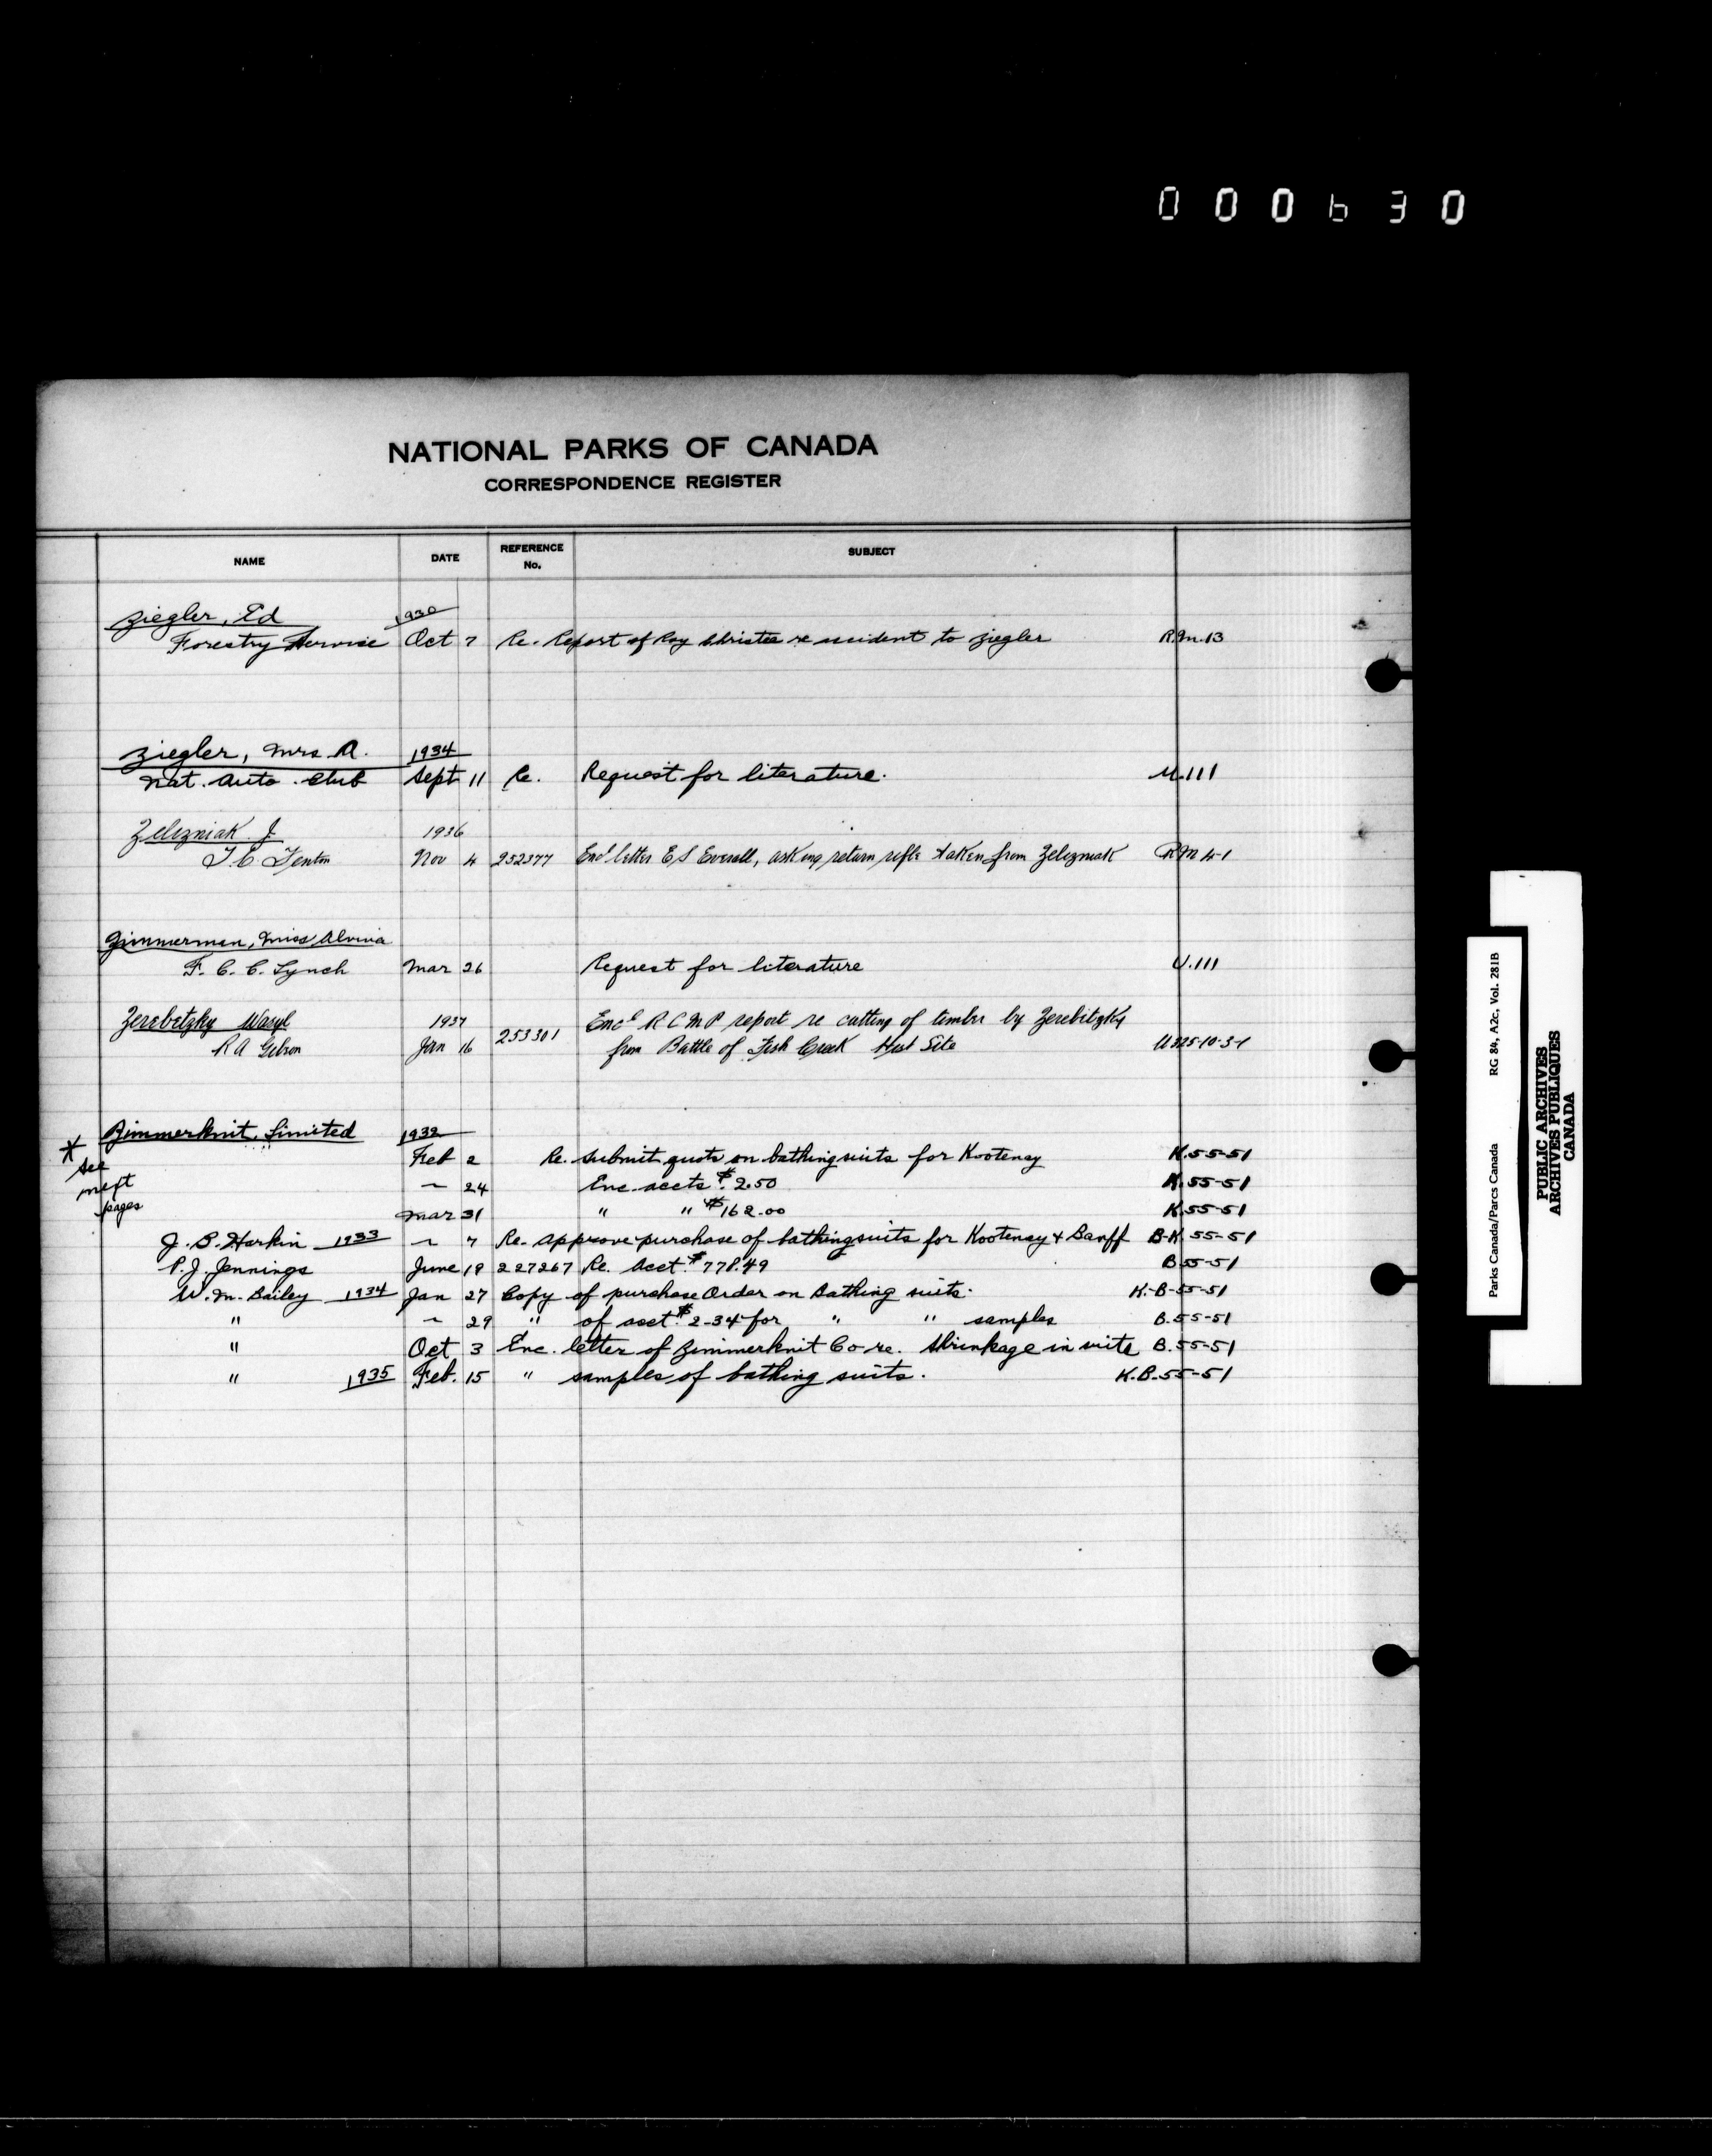 000630
NATIONAL PARKS OF CANADA
CORRESPONDENCE REGISTER
NAME DATE REFERENCE No. SUBJECT
Ziegler, Ed 1930
Forestry Service Oct 7 Re. Report of Roy re accident to Ziegler R.M.13
Ziegler, Mrs A. 1934
Nat. Auto. Club Sept 11 Re. Request for literature. U.111
Zelezniak J. 1936
T.C. Fenton Nov 4 252377 Encl letter E S Everall, asking return rifle taken from Zelezniak RM 4-1
Zimmerman, Miss Alvina
F. C. C. Lynch Mar 26 Request for literature U.111
Zerebetzky Wasyl 1937 253301 Encl R C M P report re cutting of timber by Zerebitzky
R A Gibson Jan 16 from Battle of Fish Creek Hist Site U325-10-3-1
Zimmerknit, Limited 1932
* see next pages
Feb 2 Re. submit quots on bathingsuits for Kootenay K.55-51
~ 24 Enc. accts $2.50 K.55-51
Mar 31 " " $162.00 K.55-51
J. B. Harkin 1933 ~ 7 Re. approve purchase of bathingsuits for Kootenay & Banff B-K.55-51
P. J. Jennings June 19 227267 Re. Acct. $778.49 B55-51
W. M. Bailey 1934 Jan 27 Copy of purchase Order on Bathing suits. K.-B-55-51
" ~ 29 " of acct. $2.34 for " " samples B.55-51
" Oct 3 Enc. letter of Zimmerknit Co re. shrinkage in suits B.55-51
" 1935 Feb. 15 " samples of bathing suits. K.B.55-51
Parks Canada/Parcs Canada RG 84, A2c, Vol. 281B
PUBLIC ARCHIVES
ARCHIVES PUBLIQUES
CANADA